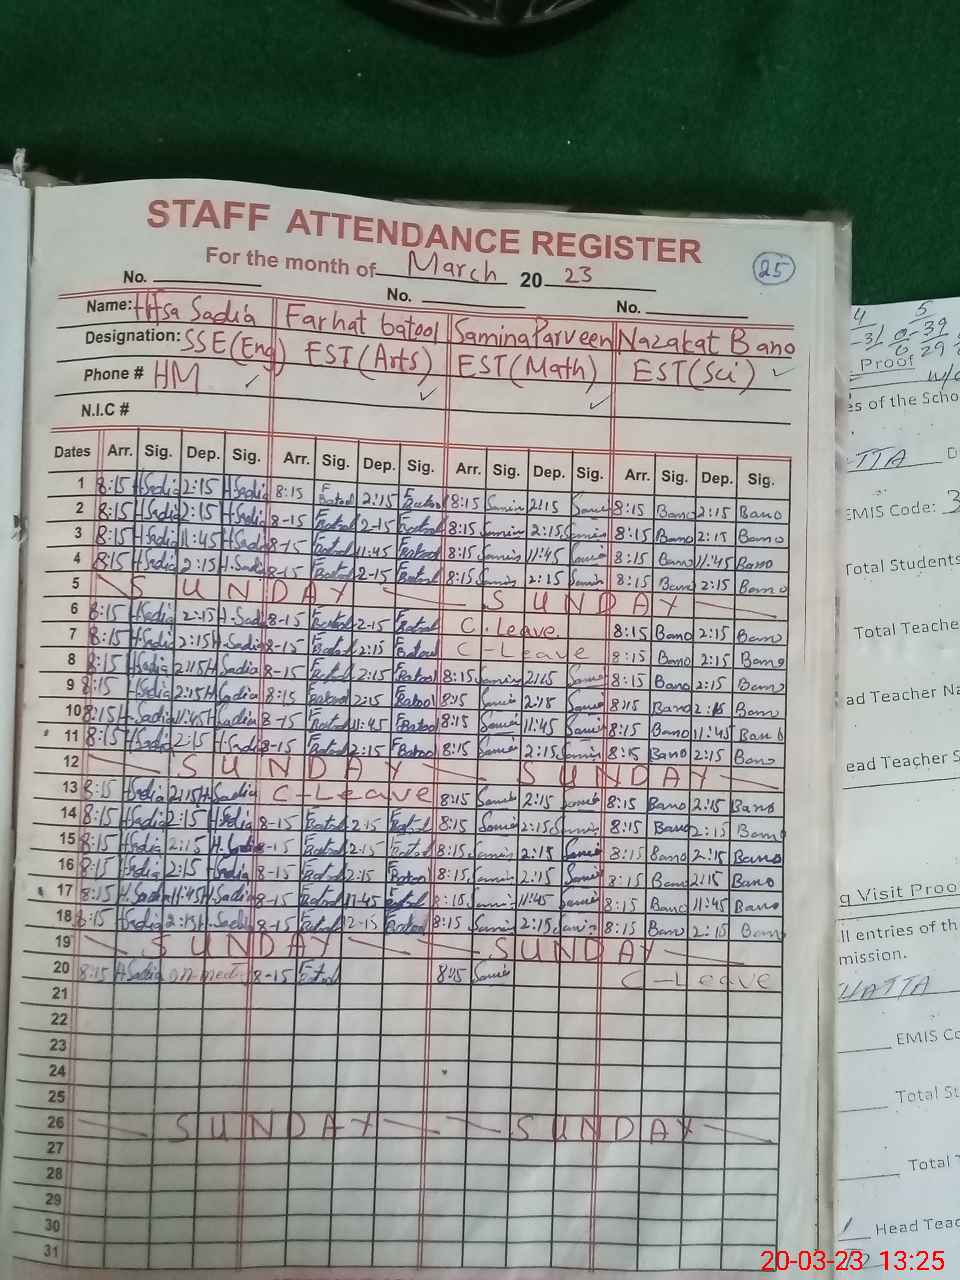 STAFF ATTENDANCE REGISTER
For the month of March 20 23
25
No. No. No.
Name: Hfsa Sadia Farhat batool Samina Parveen Nazakat Bano
Designation: SSE(Eng) EST(Arts) EST(Math) EST(Sci)
Phone # HM
N.I.C #
Dates Arr. Sig. Dep. Sig. Arr. Sig. Dep. Sig. Arr. Sig. Dep. Sig. Arr. Sig. Dep. Sig.
1 8:15 HSadia 2:15 HSadia 8:15 F Batool 2:15 F Batool 8:15 Samin 2:15 Samin 8:15 Bano 2:15 Bano
2 8:15 HSadia 2:15 HSadia 8-15 Fbatool 2-15 Fbatool 8:15 Samin 2:15 Samin 8:15 Bano 2:15 Bano
3 8:15 HSadia 11:45 HSadia 8-15 Fbatool 11:45 Fbatool 8:15 Samin 11:45 Samin 8:15 Bano 11:45 Bano
4 8:15 HSadia 2:15 H.Sadia 8-15 Fbatool 2-15 Fbatool 8:15 Samin 2:15 Samin 8:15 Bano 2:15 Bano
5 SUNDAY SUNDAY
6 8:15 HSadia 2:15 H.Sadia 8-15 Fbatool 2-15 Fbatool C.Leave 8:15 Bano 2:15 Bano
7 8:15 H.Sadia 2:15 H.Sadia 8-15 Fbatool 2:15 F Batool C-Leave 8:15 Bano 2:15 Bano
8 8:15 HSadia 2:15 HSadia 8-15 Fbatool 2:15 Fbatool 8:15 Samin 2:15 Samin 8:15 Bano 2:15 Bano
9 8:15 HSadia 2:15 HSadia 8:15 Fbatool 2:15 F Batool 8:15 Samin 2:15 Samin 8:15 Bano 2:15 Bano
10 8:15 H.Sadia 11:45 HSadia 8-15 Fbatool 11:45 F Batool 8:15 Samin 11:45 Samin 8:15 Bano 11:45 Bano
11 8:15 HSadia 2:15 H.Sadia 8-15 F Batool 2:15 F Batool 8:15 Samin 2:15 Samin 8:15 Bano 2:15 Bano
12 SUNDAY SUNDAY
13 8:15 HSadia 2:15 HSadia C-Leave 8:15 Samin 2:15 Samin 8:15 Bano 2:15 Bano
14 8:15 HSadia 2:15 HSadia 8-15 Fbatool 2:15 Fbatool 8:15 Samin 2:15 Samin 8:15 Bano 2:15 Bano
15 8:15 HSadia 2:15 H.Sadia 8-15 Fbatool 2:15 Fbatool 8:15 Samin 2:15 Samin 8:15 Bano 2:15 Bano
16 8:15 HSadia 2:15 HSadia 8-15 Fbatool 2:15 F Batool 8:15 Samin 2:15 Samin 8:15 Bano 2:15 Bano
17 8:15 H.Sadia 11:45 HSadia 8-15 Fbatool 11:45 Fbatool 8:15 Samin 11:45 Samin 8:15 Bano 11:45 Bano
18 8:15 HSadia 2:15 HSadia 8-15 Fbatool 2-15 F Batool 8:15 Samin 2:15 Samin 8:15 Bano 2:15 Bano
19 SUNDAY SUNDAY
20 8:15 HSadia 8-15 Fbatool 8:15 Samin C-Leave
21
22
23
24
25
26 SUNDAY SUNDAY
27
28
29
30
31
4 5
-31 0-39
6 29
Proof
w/
es of the Scho
TTA D
EMIS Code: 3
Total Students
Total Teache
ad Teacher Na
ead Teacher S
g Visit Proo
ll entries of th
mission.
HATTA
EMIS Co
Total St
Total T
Head Teac
20-03-23 13:25